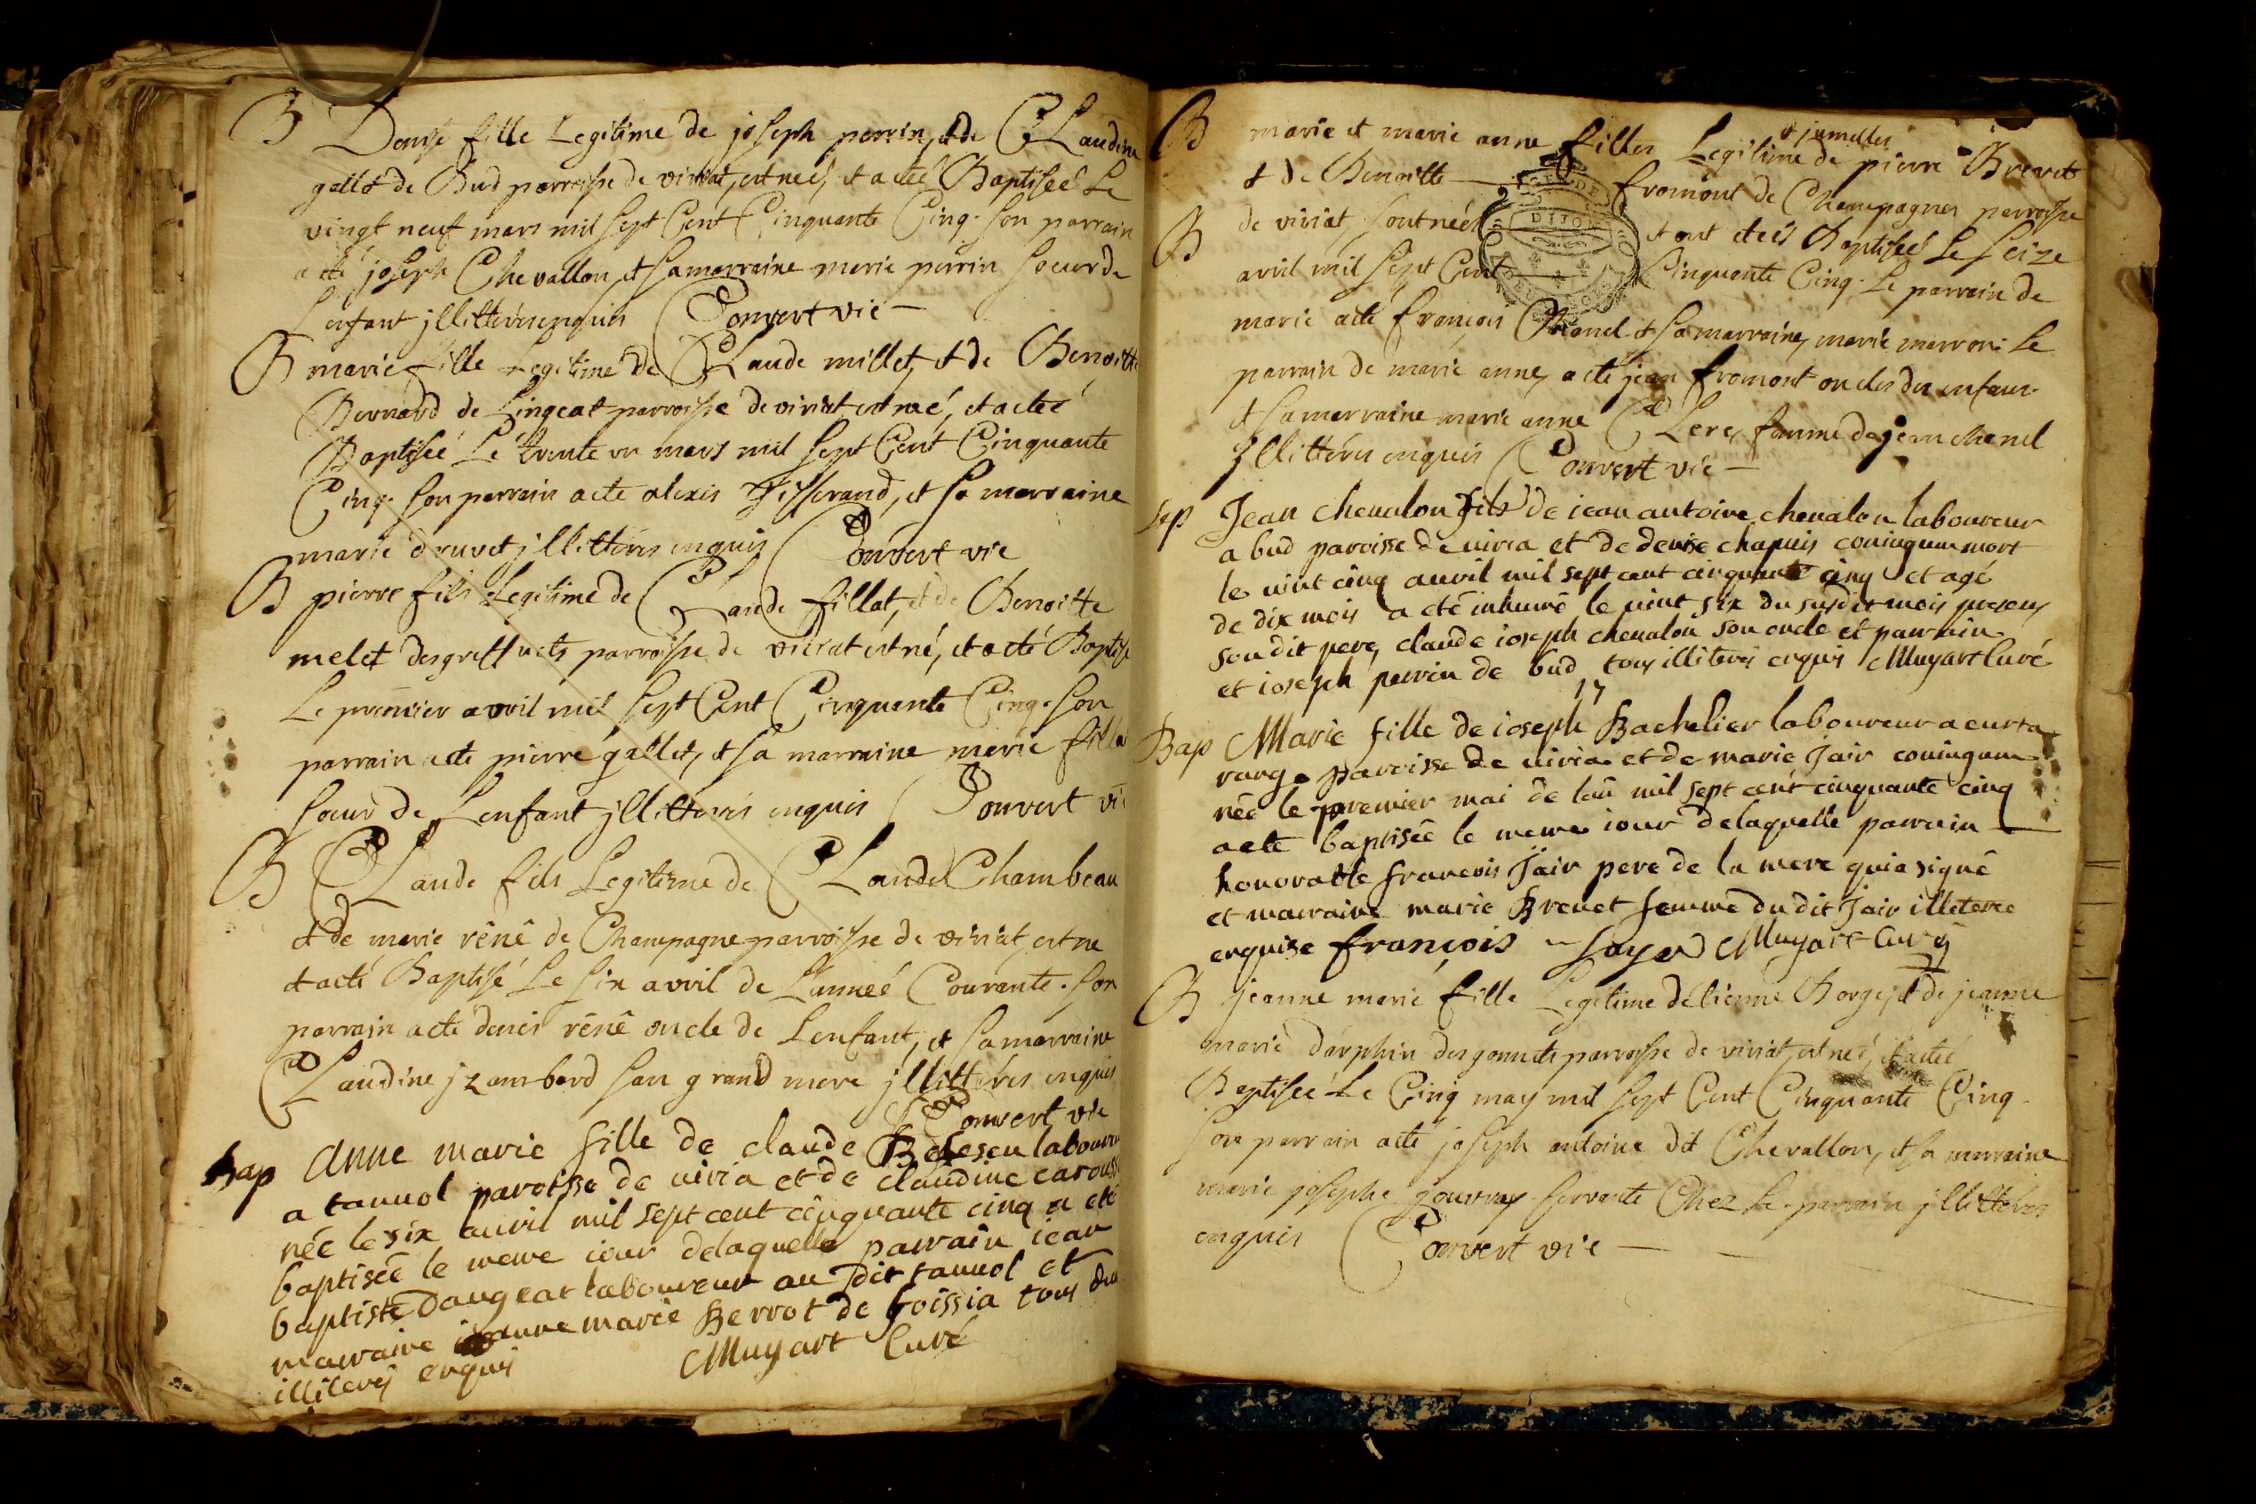 B Denise fille Legitime de joseph perrin, et de Claudine
gallet de Bud parroisse de viriat, est neé, et a eteé Baptiseé Le
vingt neuf mars mil sept Cent Cinquante Cinq. son parrain
a eté joseph Chevallon, et sa marraine marie perrin soeur de
Lenfant jllitterés enquis Convert vic
B marie fille Legitime de Claude millet, et de Benoitte
Bernard de Lingeat parroisse de viriat est neé, et a eteé
Baptiseé Le trente un mars mil sept Cent Cinquante
Cinq. son parrain a eté alexis Tisserand, et sa marraine
marie druvet jllitterés enquis Convert vic
B pierre fils Legitime de Claude fillat, et de Benoitte
melet des greffuets parroisse de viriat est né, et a eté Baptisé
Le premier avril mil sept Cent Cinquante Cinq. son
parrain a eté pierre gallet, et sa marraine marie filla
soeur de Lenfant jllitterés enquis Convert vi
B Claude fils Legitime de Claude Chambeau
et de marie réné de Champagne parroisse de viriat, est ne
et a eté Baptisé Le six avril de Lanneé Courante. son
parrain a eté denis réné oncle de Lenfant, et sa marraine
Claudine jzambard san grand mere jllitterés enquis
Convert vic
bap Anne marie fille de claude laboureu
a tanuol paroisse de uiria et de claudine carous
née le six auril mil sept cent cinquante cinq a eté
baptisée le meme iour delaquelle parrain iean
baptiste Dangeat laboureur au dit tanuol et
marraine anne marie Berrot de boissia tous
illiteres enquis Muyart Curé
B marie et marie anne filles Legitime & jumelles de pierre Brevet
et de Benoitte fromont de Champagnes parroisse
B de viriat, sont neés et ont eteés Baptiseés Le seize
avril mil sept Cent Cinquante Cinq. Le parrain de
DIJON
marie a eté françois Chanel et sa marraine, marie marron: Le
parrain de marie anne, a eté jean fromont oncles des enfans
et sa marraine marie anne Clere, femme de jean chanel
jllitterés enquis Convert vic
sep Jean cheualon fils de iean antoine cheualon laboureur
a bud paroisse de uiria et de denise chapuis coniugum mort
le uint cinq auril mil sept cent cinquante cinq et agé
de dix mois a eté inhumé le uint six du susdit mois presens
son dit pere, claude ioseph cheualon son oncle et parrain
et ioseph perrin de bud tous illiteres enquis Muyart Curé
17
Bap Marie fille de ioseph Bachelier laboureur a curta
range paroisse de uiria et de marie Jair coniugum
née le premier mai de lan mil sept cent cinquante cinq
a ete baptisée le meme iour delaquelle parrain
honorable francois Jair pere de la mere qui a signé
et marraine marie Brenet femme du dit Jair illeteree
enquise françois Muyart Curé
B jeanne marie fille Legitime détienne Borget et de jeanne
marie darphin des gonnets parroisse de viriat, est neé, et a eteé
Baptiseé Le Cinq may mil sept Cent Cinquante Cinq.
son parrain a eté joseph antoine dit Chevallon, et sa marraine
marie josephe servante Chez Le parrain jllitteres
enquis Convert vic